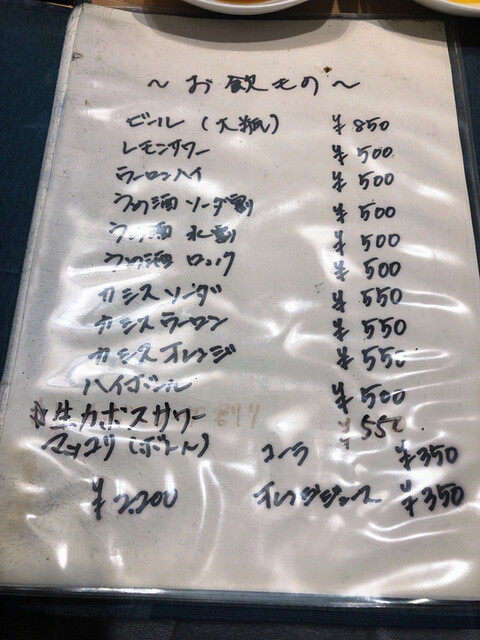 ～お飲もの～
ビール(大瓶) ¥850
レモンサワー ¥500
ウーロンハイ ¥500
うめ酒ソーダ割 ¥500
うめ酒 水割 ¥500
うめ酒 ロック ¥500
カシスソーダ ¥550
カシスウーロン ¥550
カシスオレンジ ¥550
ハイボール ¥500
生カボスサワー ¥550
マッコリ(ボトル) コーラ ¥350
¥2.200 オレンジジュース ¥350